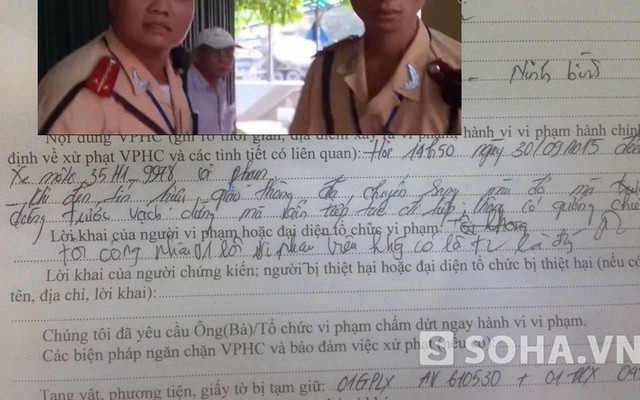 - Ninh bình
Nội dung VPHC (ghi rõ thời gian, địa điểm hành vi vi phạm hành chính
định về xử phạt VPHC và các tình tiết có liên quan): Hồi 14h50 ngày 30/09/2015
Xe môtô 35H1-9978 vi phạm
- Khi đèn tín hiệu giao thông đã chuyển sang màu đỏ mà
dừng trước vạch dừng mà vẫn tiếp tục đi tiếp, không có
Lời khai của người vi phạm hoặc đại diện tổ chức vi phạm: Tôi không
tôi công nhận lỗi vi phạm trên là đúng
Lời khai của người chứng kiến; người bị thiệt hại hoặc đại diện tổ chức bị thiệt hại (nếu có
tên, địa chỉ, lời khai):
Chúng tôi đã yêu cầu Ông(Bà)/Tổ chức vi phạm chấm dứt ngay hành vi vi phạm.
Các biện pháp ngăn chặn VPHC và bảo đảm việc xử phạt (nếu có)
SOHA.VN
Tang vật, phương tiện, giấy tờ bị tạm giữ: 01GPLX AV 610530 + 01